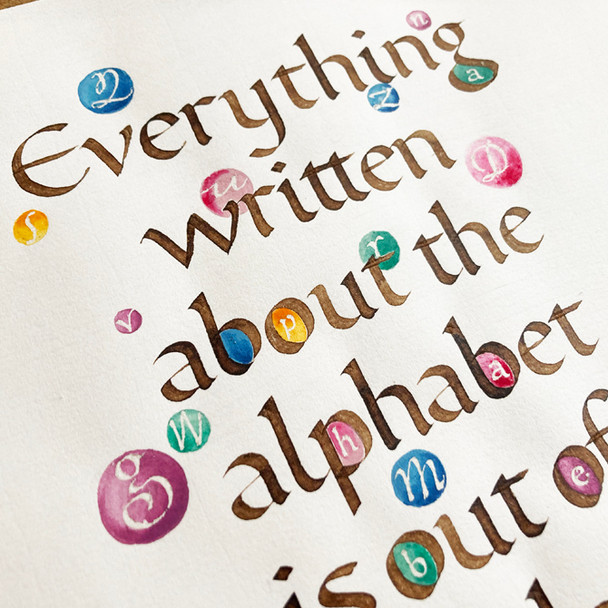 Everything
written
about the
alphabet
is out of